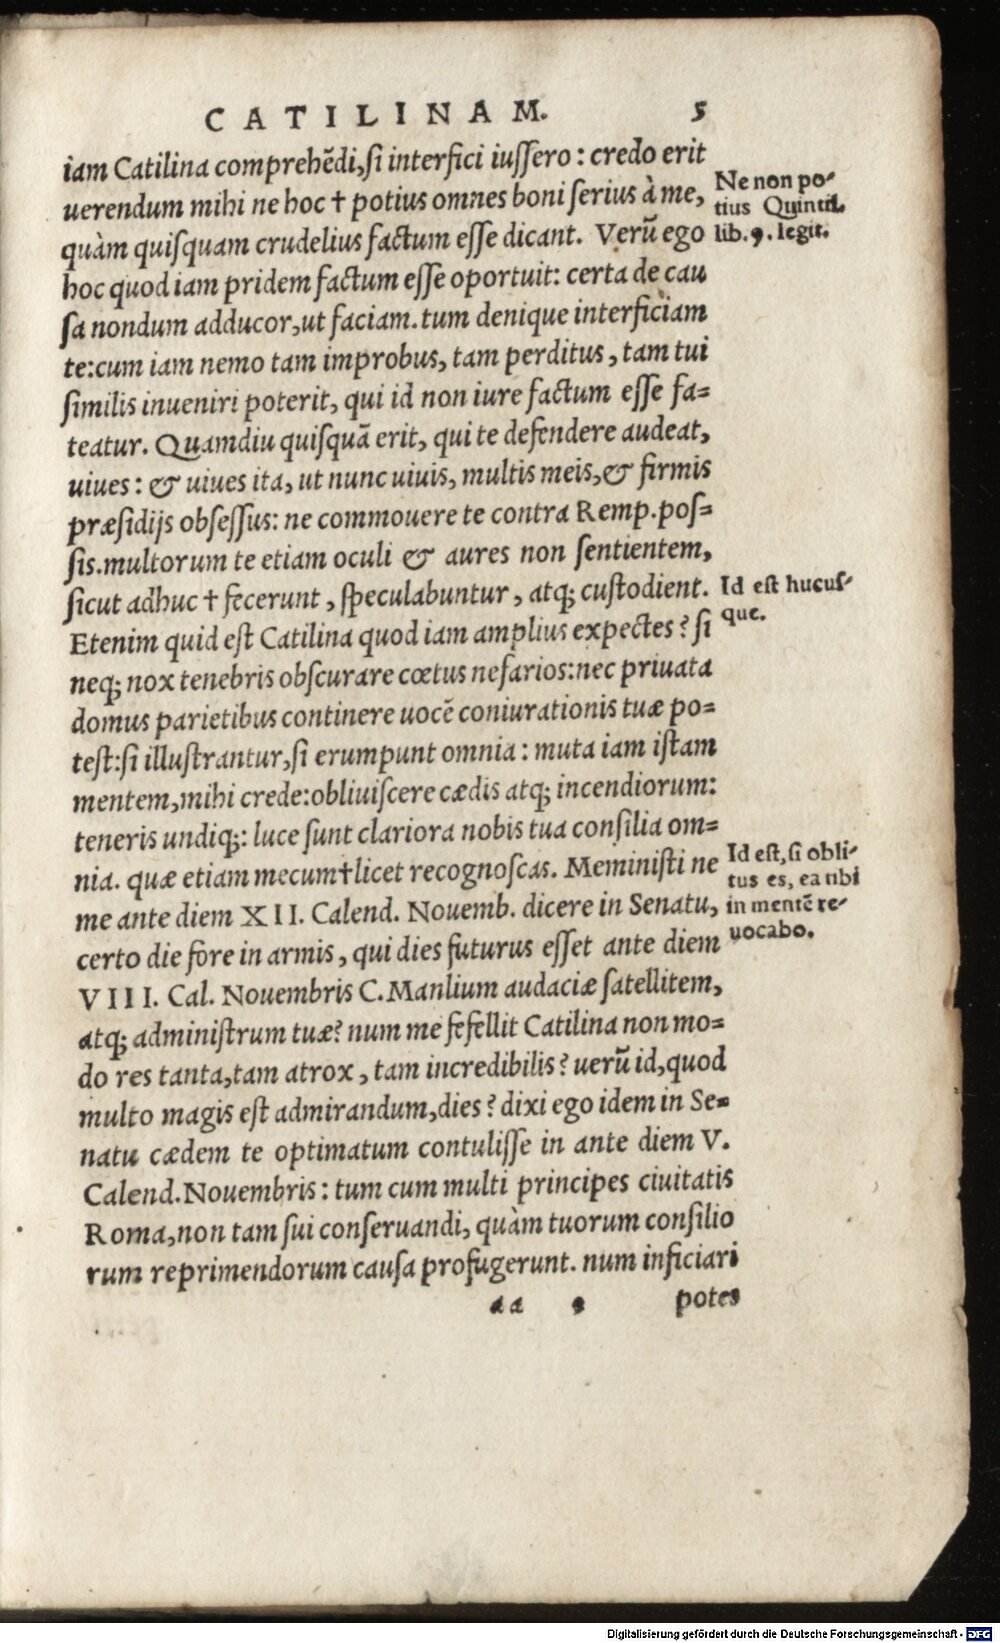 CATILINAM. 5
iam Catilina comprehẽdi, si interfici iussero: credo erit
uerendum mihi ne hoc † potius omnes boni serius à me,
quàm quisquam crudelius factum esse dicant. Verũ ego
hoc quod iam pridem factum esse oportuit: certa de cau
sa nondum adducor, ut faciam. tum denique interficiam
te: cum iam nemo tam improbus, tam perditus, tam tui
similis inueniri poterit, qui id non iure factum esse fa=
teatur. Quamdiu quisquã erit, qui te defendere audeat,
uiues: & uiues ita, ut nunc uiuis, multis meis, & firmis
præsidijs obsessus: ne commouere te contra Remp. pos=
sis. multorum te etiam oculi & aures non sentientem,
sicut adhuc † fecerunt, speculabuntur, atq; custodient.
Etenim quid est Catilina quod iam amplius expectes? si
neq; nox tenebris obscurare cœtus nefarios: nec priuata
domus parietibus continere uocẽ coniurationis tuæ po=
test: si illustrantur, si erumpunt omnia: muta iam istam
mentem, mihi crede: obliuiscere cædis atq; incendiorum:
teneris undiq;: luce sunt clariora nobis tua consilia om=
nia. quæ etiam mecum † licet recognoscas. Meministi ne
me ante diem XII. Calend. Nouemb. dicere in Senatu,
certo die fore in armis, qui dies futurus esset ante diem
VIII. Cal. Nouembris C. Manlium audaciæ satellitem,
atq; administrum tuæ? num me fefellit Catilina non mo=
do res tanta, tam atrox, tam incredibilis? uerũ id, quod
multo magis est admirandum, dies? dixi ego idem in Se=
natu cædem te optimatum contulisse in ante diem V.
Calend. Nouembris: tum cum multi principes ciuitatis
Roma, non tam sui conseruandi, quàm tuorum consilio
rum reprimendorum causa profugerunt. num inficiari
aa potes
Ne non po-
tius Quintil.
lib. 9. legit.
Id est hucus-
que.
Id est, si obli-
tus es, ea tibi
in mentẽ re-
uocabo.
Digitalisierung gefördert durch die Deutsche Forschungsgemeinschaft - DFG